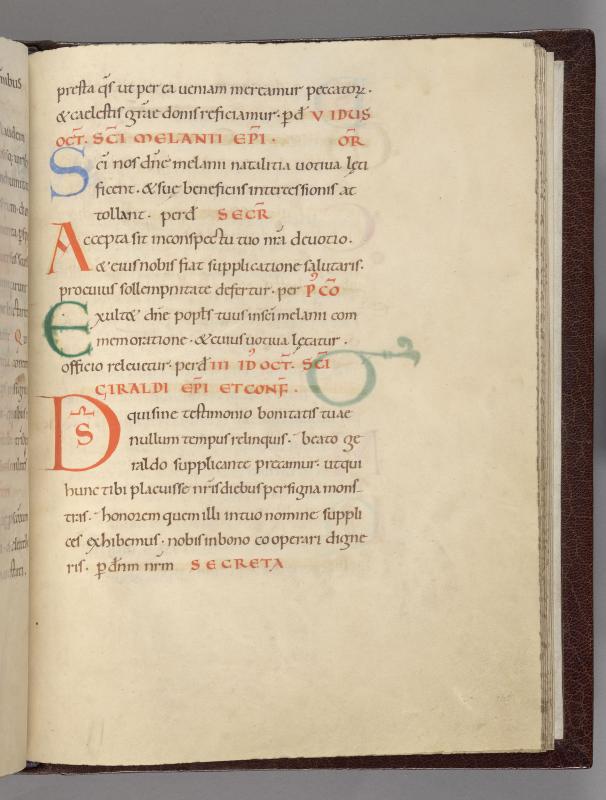 presta qs ut per ea ueniam mereamur peccatoꝝ.
& caelestis grae donis reficiamur. p̄d V IDUS
OCT. SCI MELANII EPI. OR
Sci nos dne melanii natalitia uotiua lęti
ficent. & suę beneficiis intercessionis at
tollant. perd SECR
Accepta sit in conspectu tuo nra deuotio.
& eius nobis fiat supplicatione salutaris.
pro cuius sollempnitate defertur. per P̕ CO
Exult& dne popls tuus in sci melanii com
memoratione. & cuius uotiua lęcatur.
officio releuetur. perd III ID̕ OCT. SCI
GIRALDI EPI ET CONF.
DS qui sine testimonio bonitatis tuae
nullum tempus relinquis. beato ge
raldo supplicante precamur. ut qui
hunc tibi placuisse nris diebus per signa mons
tras. honorem quem illi in tuo nomine suppli
ces exhibemus. nobis in bono cooperari digne
ris. p dnm nrm SECRETA